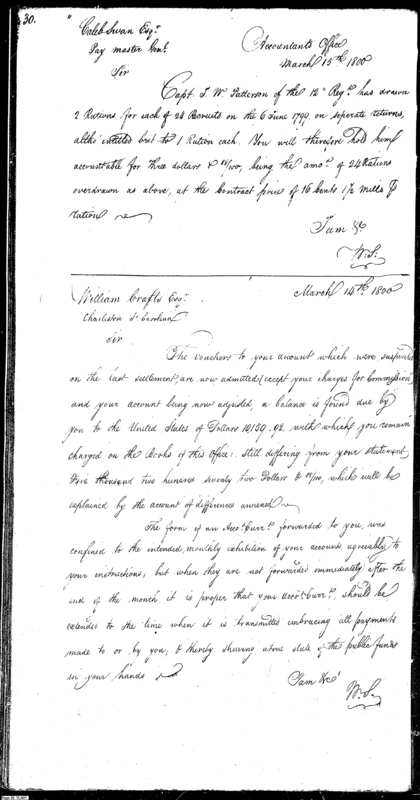 30.
Caleb Swan Esqr.
Pay master Genl.
Accountants Office
March 15th 1800
Sir
Capt. J. Wm. Patterson of the 12th Regt. has drawn
2 Rations for each of 23 Recruits on the 6 June 1799, on seperate returns,
altho' entitled but to 1 Ration each. You will therefore hold him
accountable for three dollars & /100, being the amot. of 24 Rations
overdrawn as above, at the Contract price of 16 Cents 1/2 Mills
ration
I am &c.
W. S.
William Crafts Esqr.
March 14th. 1800
Charleston So. Carolina
Sir
The vouchers to your account which were suspended
on the last settlement, are now admitted (except your charges for Commission)
and your account being now adjusted, a balance is found due by
you to the United States of Dollars 10,159.92. with which you remain
charged on the Books of this Office: still differing from your statement
thousand two hundred seventy two Dollars & /100, which will be
explained by the account of differences annexed
The form of an Acct. Currt. forwarded to you, was
confined to the intended, monthly exhibition of your accounts agreeably to
your instructions, but when they are not forwarded immediately after the
end of the month it is proper that your acct. Currt. should be
extended to the time when it is transmitted embracing all payments
made to or by you, & thereby shewing a true state of the public funds
in your hands
I am &c
W. S.